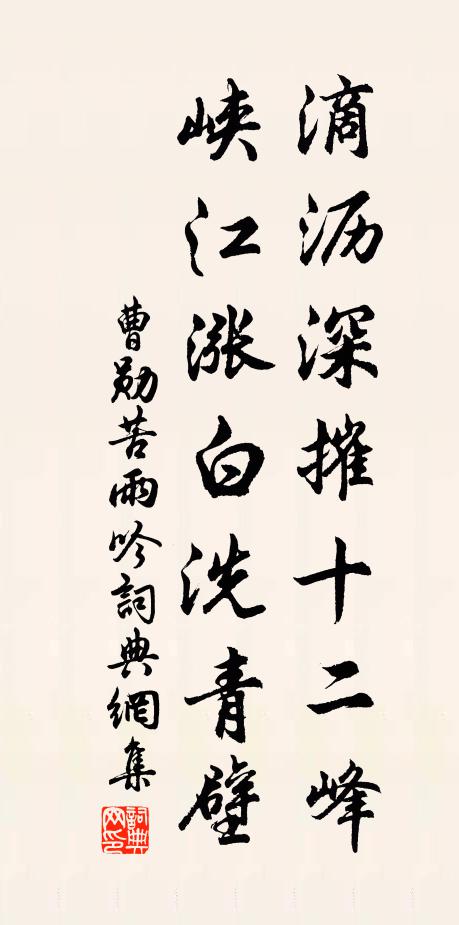 滴沥深摧十二峰
峡江涨白洗青壁
曹勋苦雨吟詞典網集
詞典網印